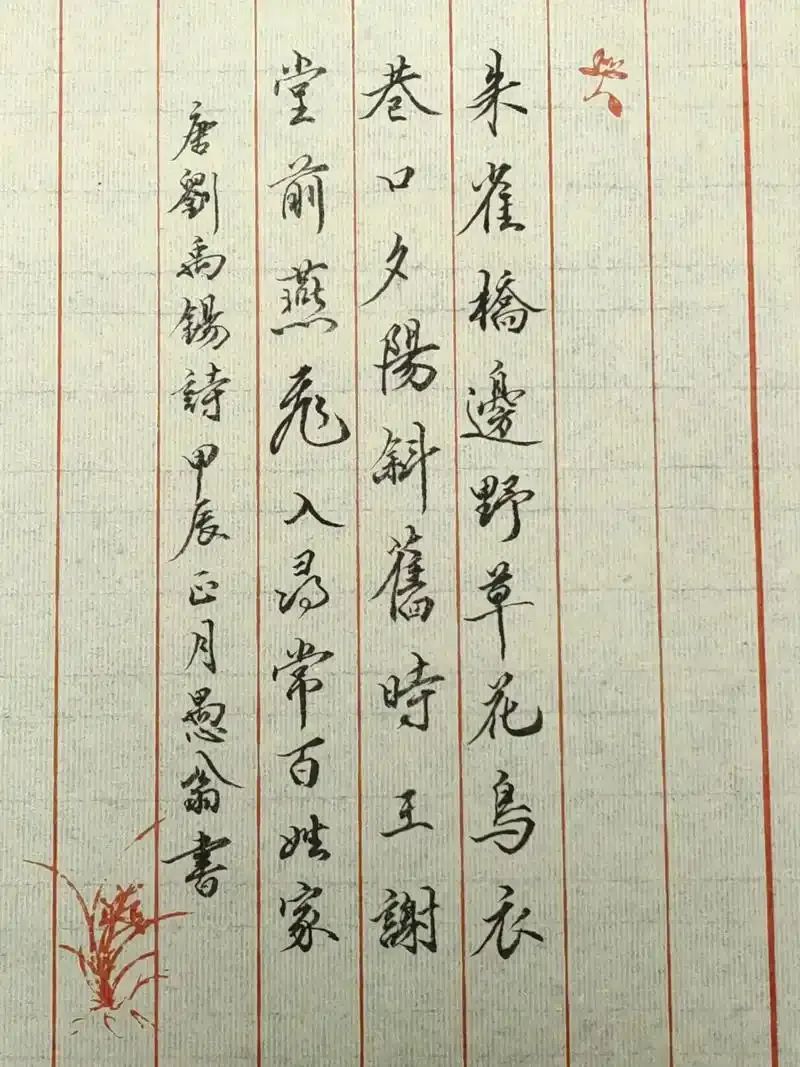 朱雀橋邊野草花烏衣
巷口夕陽斜舊時王謝
堂前燕飛入尋常百姓家
唐劉禹錫詩甲辰正月愚翁書